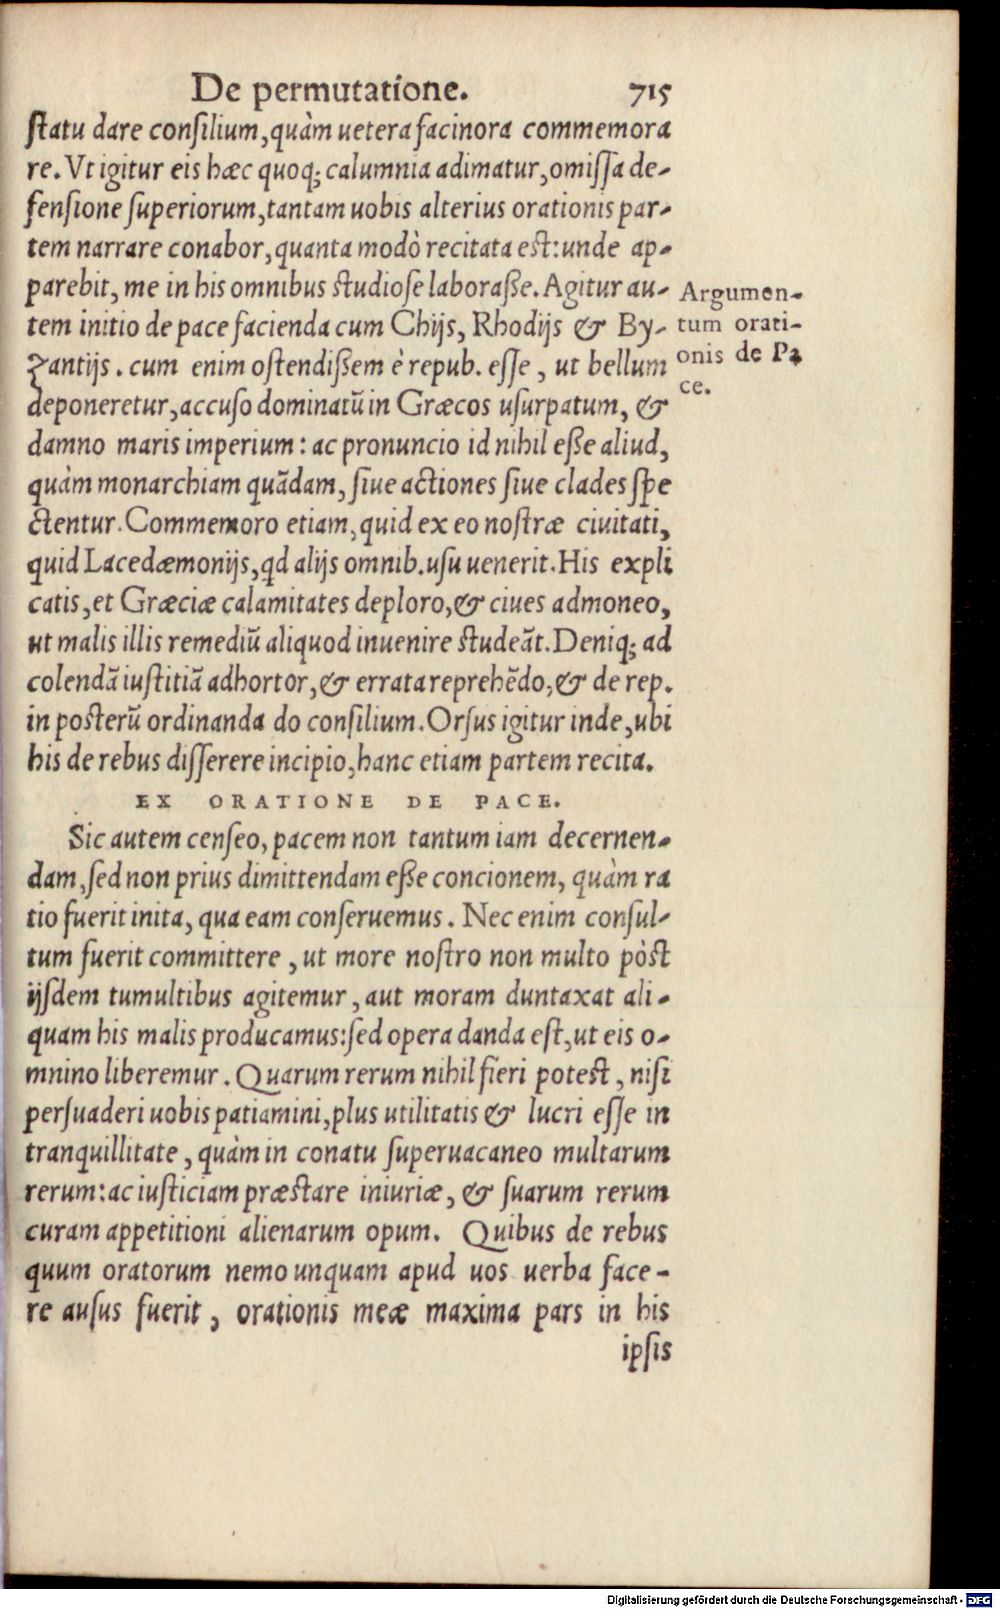 De permutatione. 715
ſtatu dare conſilium, quàm uetera facinora commemora
re. Vt igitur eis hæc quoq; calumnia adimatur, omiſſa de-
fenſione ſuperiorum, tantam uobis alterius orationis par-
tem narrare conabor, quanta modò recitata eſt: unde ap-
parebit, me in his omnibus ſtudioſe laboraſſe. Agitur au-
tem initio de pace facienda cum Chijs, Rhodijs & By-
zantijs. cum enim oſtendiſſem è repub. eſſe, ut bellum
deponeretur, accuſo dominatũ in Græcos uſurpatum, &
damno maris imperium: ac pronuncio id nihil eſſe aliud,
quàm monarchiam quãdam, ſiue actiones ſiue clades ſpe
ctentur. Commemoro etiam, quid ex eo noſtræ ciuitati,
quid Lacedæmonijs, qd alijs omnib. uſu uenerit. His expli
catis, et Græciæ calamitates deploro, & ciues admoneo,
ut malis illis remediũ aliquod inuenire ſtudeãt. Deniq; ad
colendã iuſtitiã adhortor, & errata reprehẽdo, & de rep.
in poſterũ ordinanda do conſilium. Orſus igitur inde, ubi
his de rebus diſſerere incipio, hanc etiam partem recita.
Argumen-
tum orati-
onis de Pa
ce.
EX ORATIONE DE PACE.
Sic autem cenſeo, pacem non tantum iam decernen-
dam, ſed non prius dimittendam eſſe concionem, quàm ra
tio fuerit inita, qua eam conſeruemus. Nec enim conſul-
tum fuerit committere, ut more noſtro non multo pòſt
ijſdem tumultibus agitemur, aut moram duntaxat ali-
quam his malis producamus: ſed opera danda eſt, ut eis o-
mnino liberemur. Quarum rerum nihil fieri poteſt, niſi
perſuaderi uobis patiamini, plus utilitatis & lucri eſſe in
tranquillitate, quàm in conatu ſuperuacaneo multarum
rerum: ac iuſticiam præſtare iniuriæ, & ſuarum rerum
curam appetitioni alienarum opum. Quibus de rebus
quum oratorum nemo unquam apud uos uerba face-
re auſus fuerit, orationis meæ maxima pars in his
ipſis
Digitalisierung gefördert durch die Deutsche Forschungsgemeinschaft - DFG